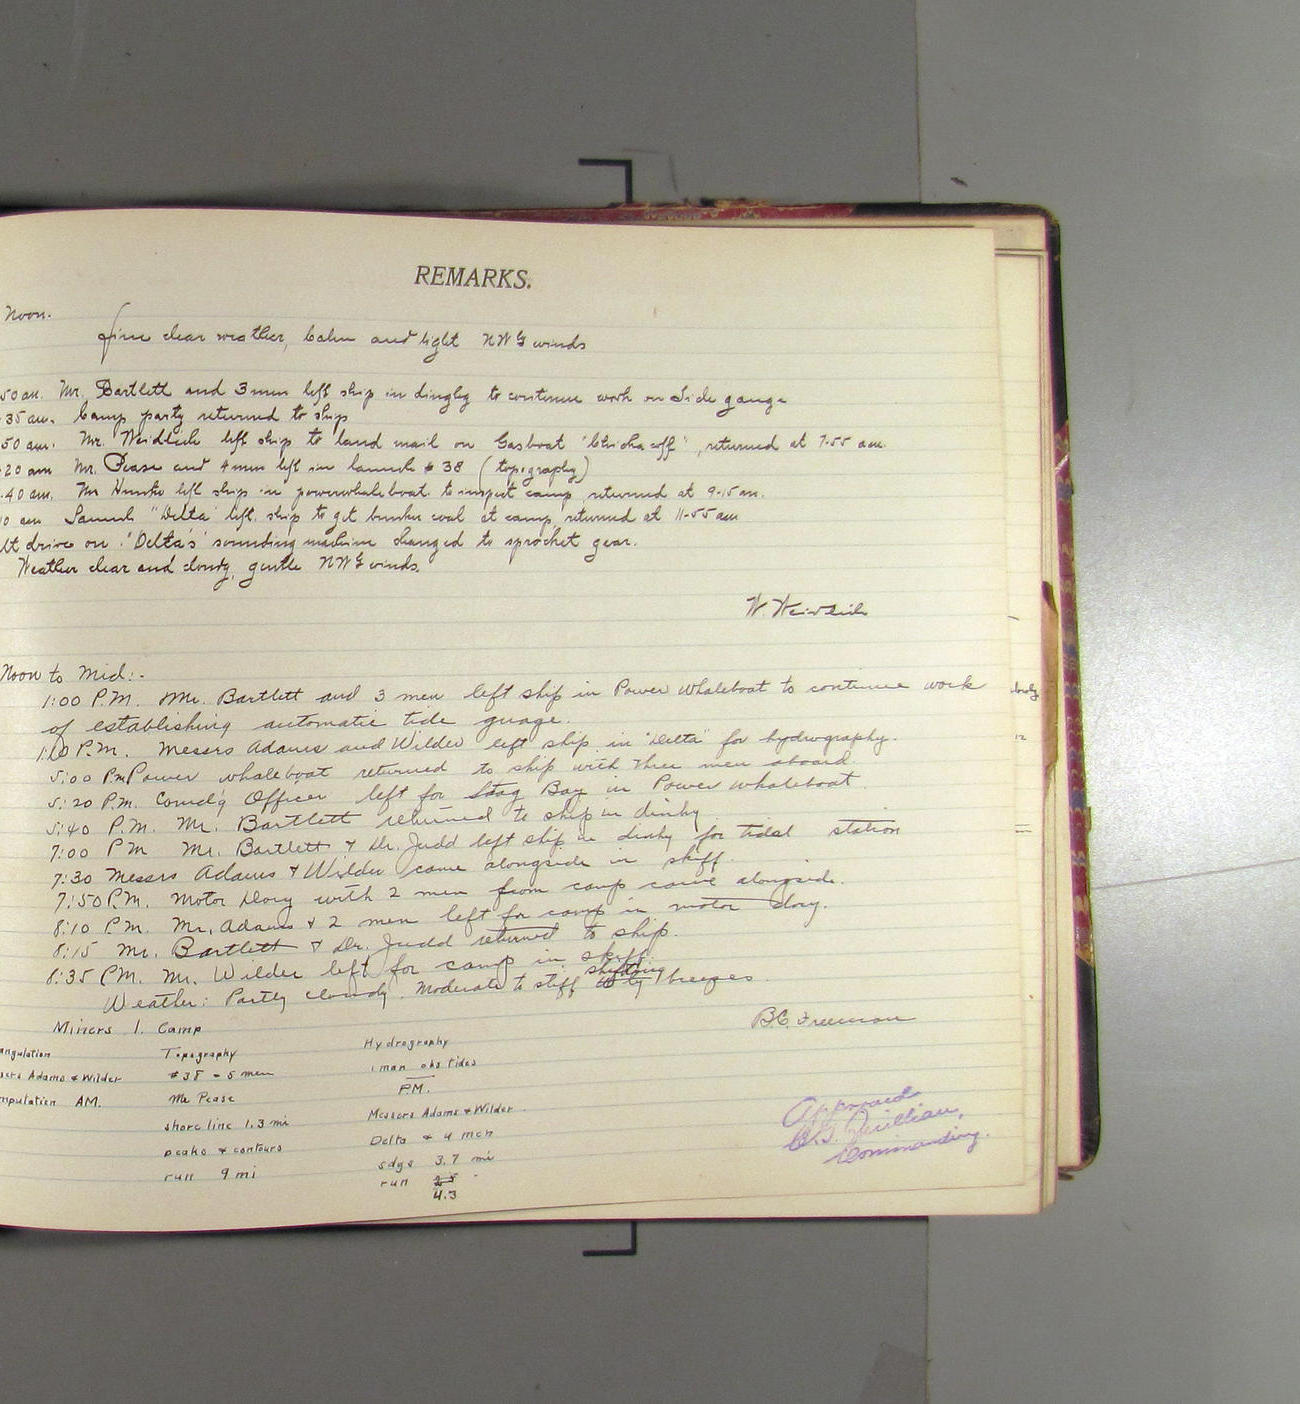 REMARKS.
Noon.
Fine clear weather, Calm and light NW'ly winds
50 am. Mr. Bartlett and 3 men left ship in dinghy to continue work on tide gauge
35 am. Camp party returned to ship
50 am. Mr. Weidlich left ship to land mail on Gasboat "Chichacoff", returned at 7-55 am.
20 am Mr. Pease and 4 men left in launch #38 (topography)
40 am. Mr left ship in powerwhaleboat to inspect camp, returned at 9-15 am.
10 am Launch "Delta" left ship to get bunker coal at camp, returned at 11-55 am
drive on "Delta's" sounding machine changed to sprocket gear.
Weather clear and cloudy, gentle NW'ly winds.
W. Weidlich
Noon to Mid:-
1:00 P.M. Mr. Bartlett and 3 men left ship in Power Whaleboat to continue work
of establishing automatic tide guage.
1:10 P.M. Messrs Adams and Wilder left ship in "Delta" for hydrography.
5:00 Pm Power whaleboat returned to ship with three men aboard.
5:20 P.M. Comd'g Officer left for Stag Bay in Power whaleboat.
5:40 P.M. Mr. Bartlett returned to ship in dinky
7:00 PM Mr. Bartlett & Dr. Judd left ship in dinky for tidal station
7:30 Messrs Adams & Wilder came alongside in skiff.
7:50 P.M. Motor Dory with 2 men from camp came alongside.
8:10 P.M. Mr. Adams & 2 men left for camp in motor dory.
8:15 Mr. Bartlett & Dr. Judd returned to ship.
8:35 P.M. Mr. Wilder left for camp in skiff.
Weather: Partly cloudy. Moderate to stiff shifting breezes
B.C. Freeman
Miners I. Camp
angulation Topography Hydrography
sers Adams & Wilder #38 - 5 men 1 man obs tides
mputation AM. Mr Pease P.M.
shore line 1.3 mi Messers Adams & Wilder
peaks & contours Delta & 4 men
run 9 mi sdgs 3.7 mi
run
4.3
Approved
Quillian,
Commanding.
cloudy